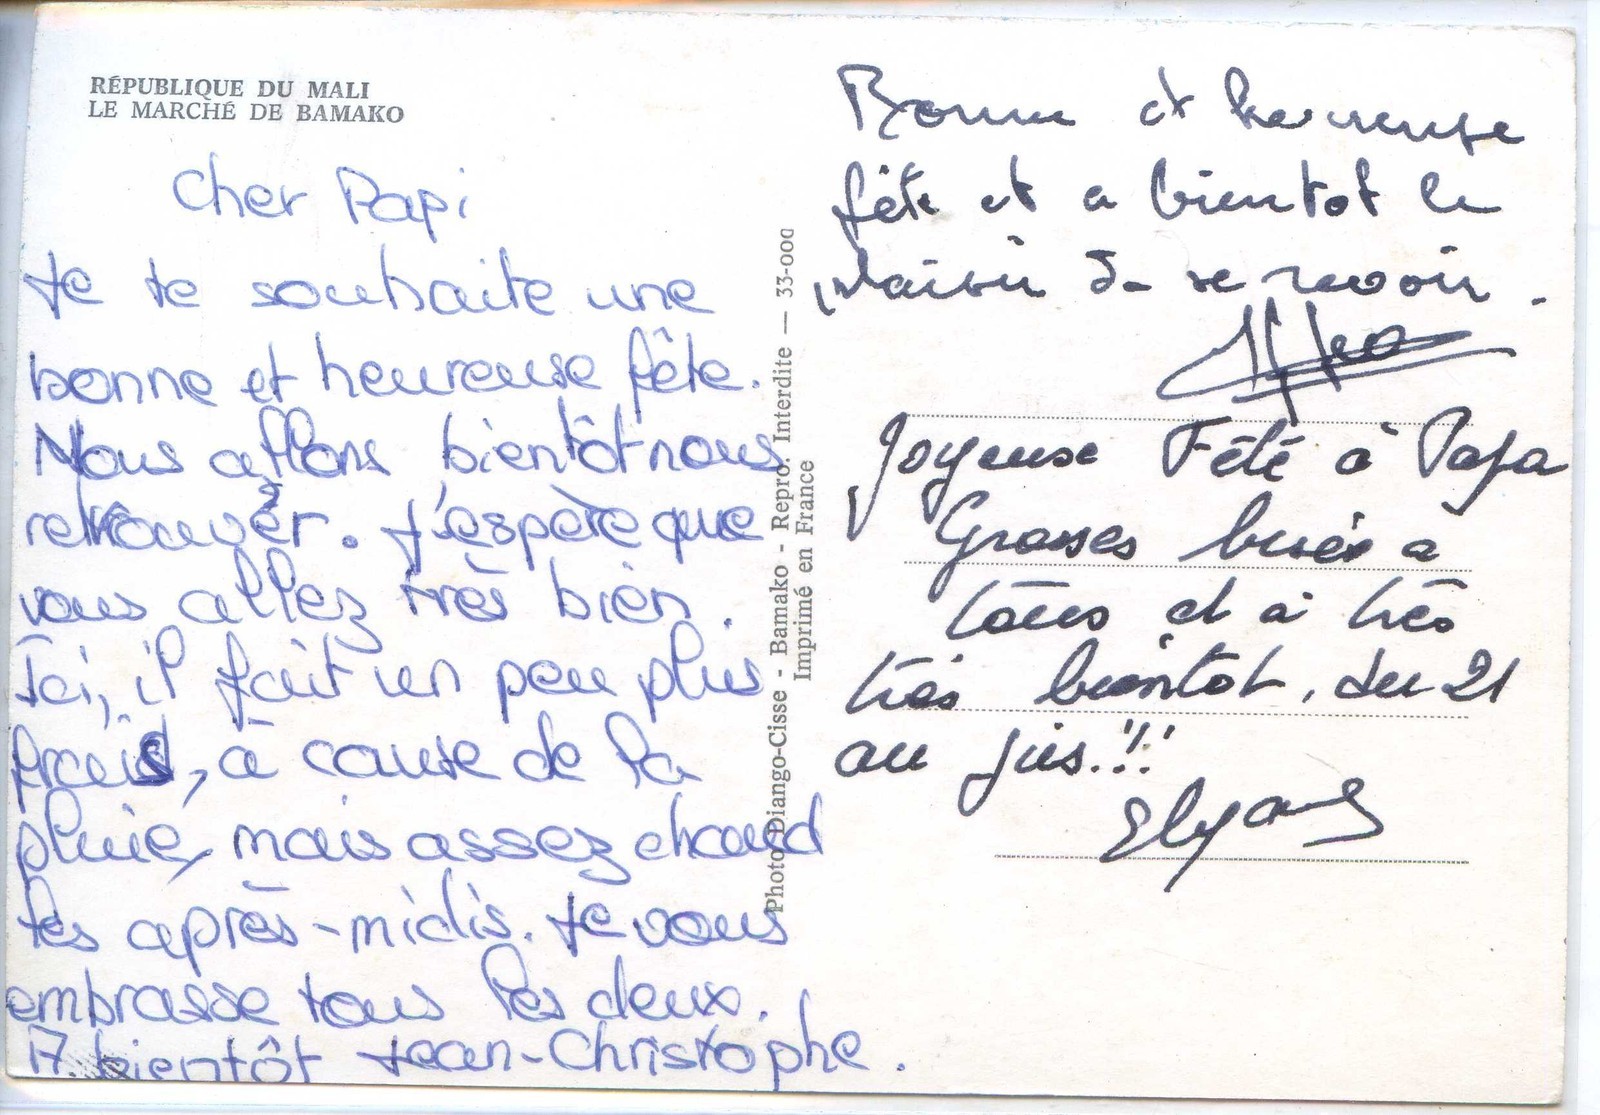 RÉPUBLIQUE DU MALI
LE MARCHÉ DE BAMAKO
Cher Papi
Je te souhaite une
bonne et heureuse fête.
Nous allons bientôt nous
retrouver. J'espère que
vous allez très bien.
Ici, il fait un peu plus
frais, à cause de la
pluie, mais assez chaud
les après-midis. Je vous
embrasse tous les deux.
A bientôt Jean-Christophe.
Photo Diango-Cisse - Bamako - Repro. Interdite — 33-000
Imprimé en France
Bonne et heureuse
fête et a bientot le
plaisir de se revoir.
Joyeuse Fête à Papa
Grosses bises a
tous et à très
très bientot, du 21
au